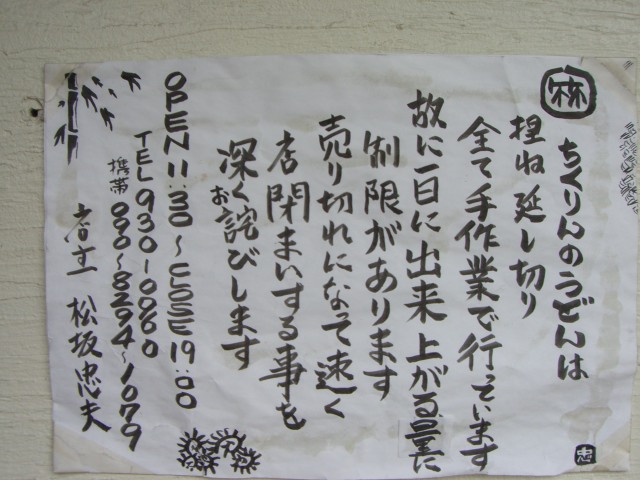 ちくりんのうどんは
捏ね延し切り
全て手作業で行っています
故に一日に出来上がる量に
制限があります
売り切れになって速く
店閉まいする事を
深くお詫びします
OPEN 11:30〜CLOSE 19:00
TEL 930-0060
携帯 090〜8294〜1079
店主 松坂忠夫
忠